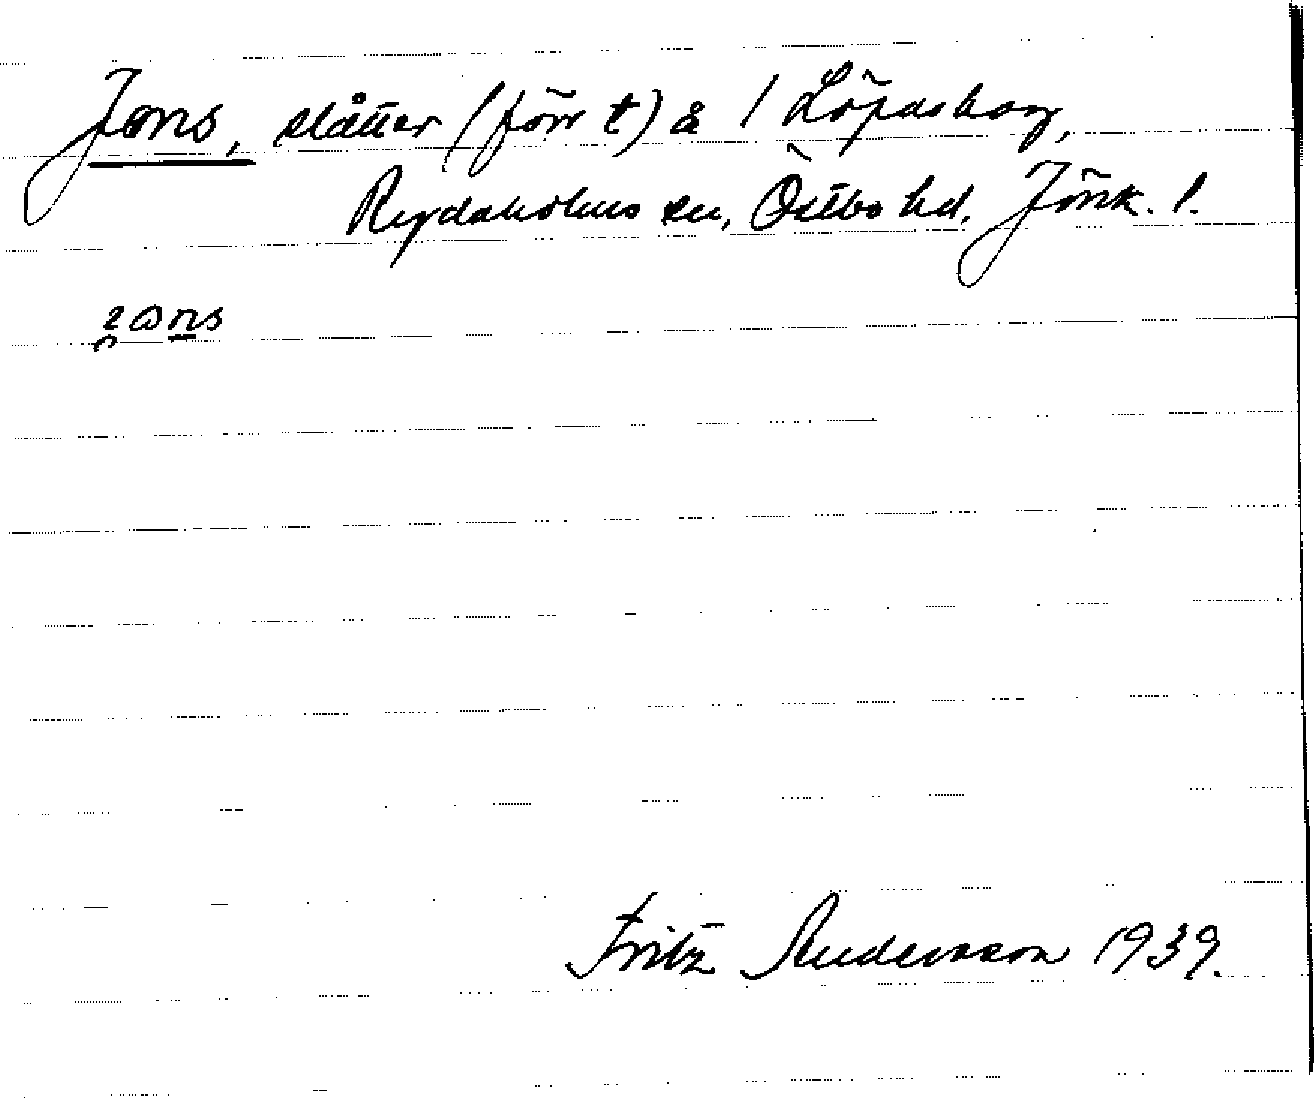 Jons, slåtter (förr t) å 1 Löpaskog,
Rydaholms sn, Östbo hd. Jönk. l.
Fritz Andersson 1939.